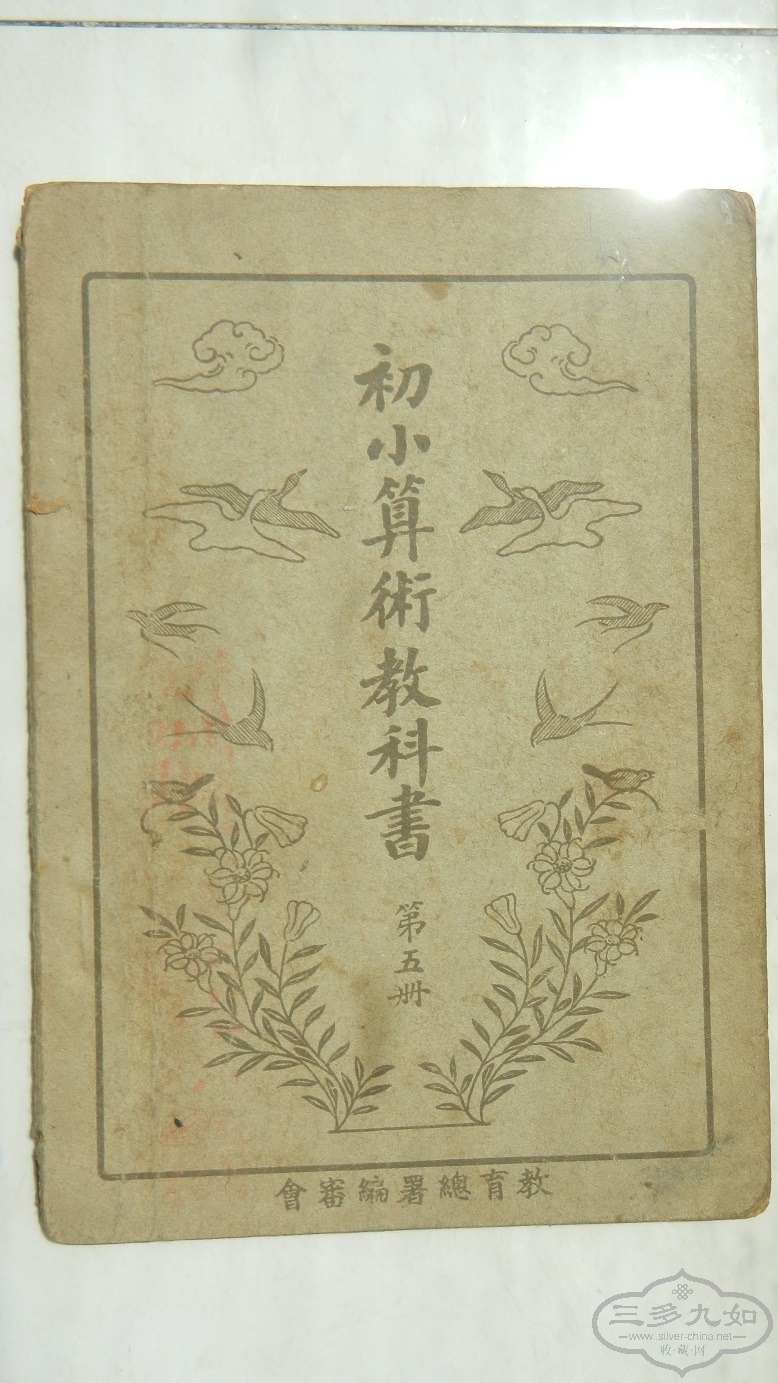 初小算術教科書
第五册
教育總署編審會
三多九如
www.silver-china.net
收·藏·网